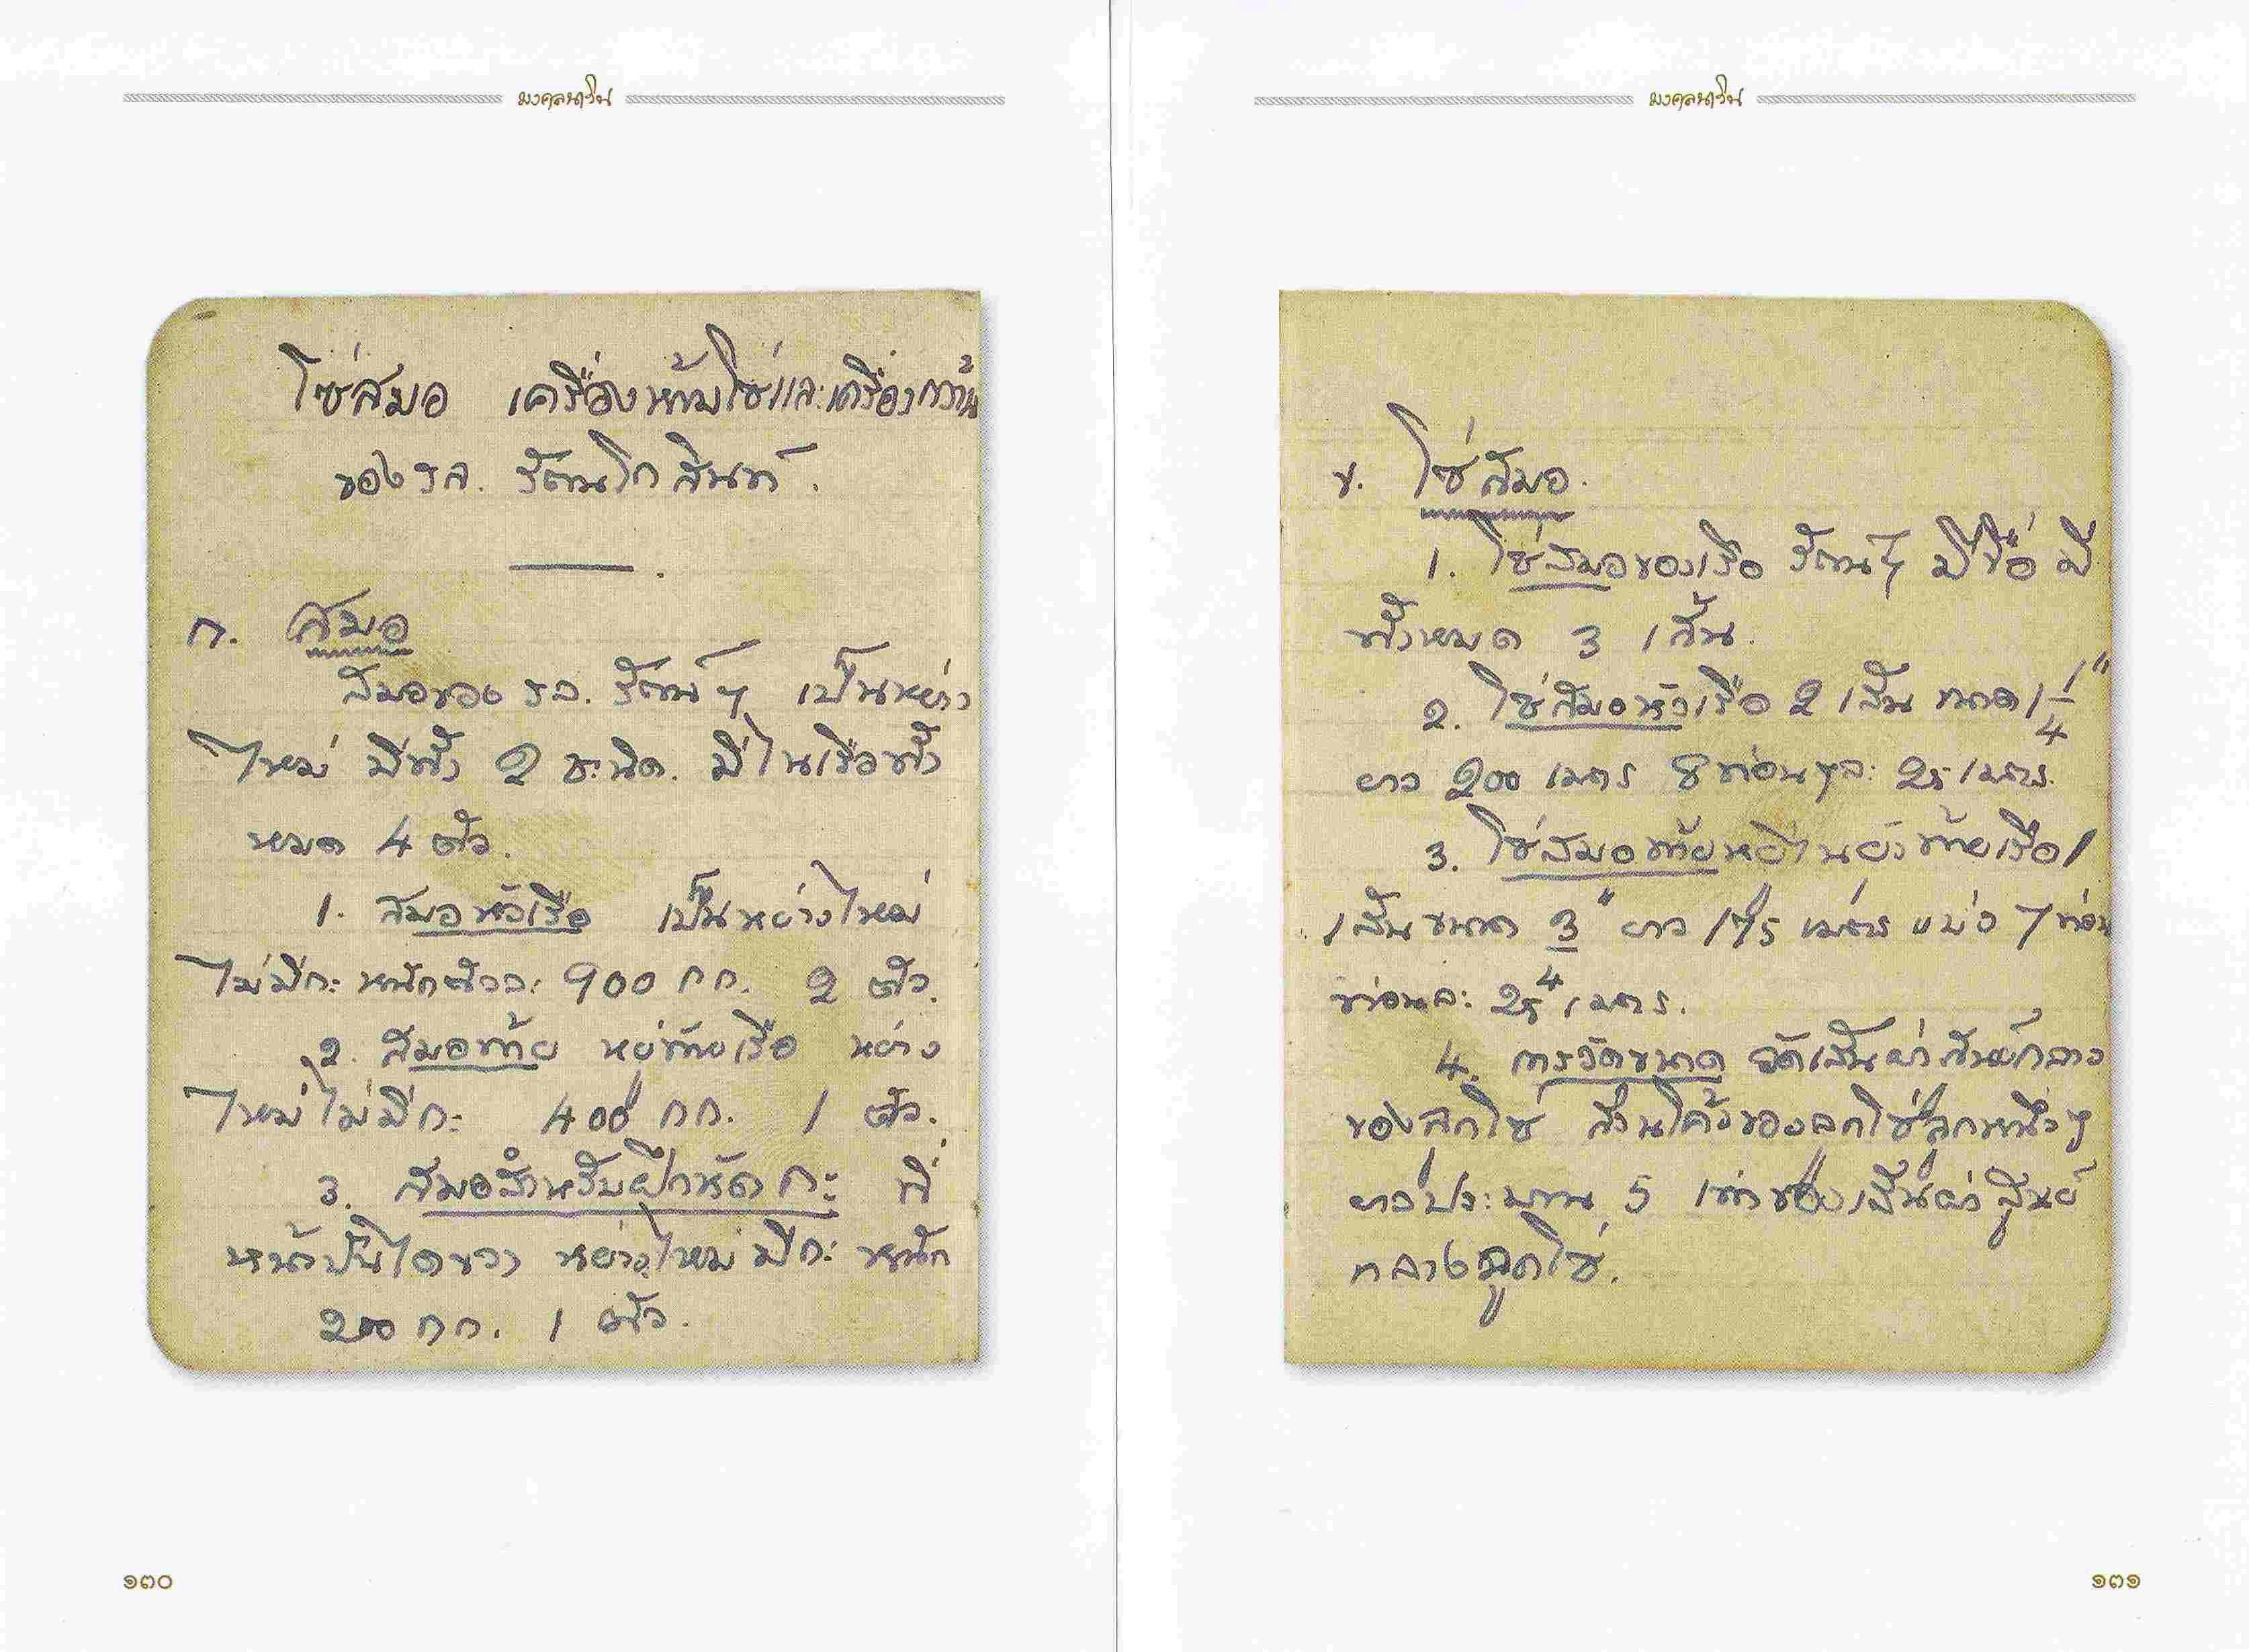 มงคลนาวิน
โซ่สมอ เครื่องห้ามโซ่และเครื่องกว้าน
ของ ร ล. รัตนโกสินทร์.
ก. สมอ
สมอของ ร ล. รัตน์ฯ เป็นหย่าง
ไหม่ มีทั้ง 2 ชะนิด. มีไนเรือทั้ง
หมด 4 ตัว.
1. สมอหัวเรือ เป็นหย่างไหม่
ไม่มีกะ หนักตัวละ 900 กก. 2 ตัว.
2. สมอท้าย หยู่ท้ายเรือ หย่าง
ไหม่ไม่มีกะ 400 กก. 1 ตัว.
3. สมอสำหรับฝึกหัด กะ ที่
หน้าบันไดขวา หย่างไหม่ มีกะ หนัก
200 กก. 1 ตัว.
๑๓๐
มงคลนาวิน
ข. โซ่สมอ.
1. โซ่สมอของเรือ รัตนฯ มี มี
ทั้งหมด 3 เส้น.
2. โซ่สมอหัวเรือ 2 เส้น ขนาด 1 1/4"
ยาว 200 เมตร 8 ท่อนๆละ 25 เมตร.
3. โซ่สมอท้ายหยู่ไน ท้ายเรือ
1 เส้น ขนาด 3/4" ยาว 175 เมตร แบ่ง 7 ท่อน
ท่อนละ 25 เมตร.
4. การวัดขนาด วัดเส้นผ่าสูนย์กลาง
ของลูกโซ่ ส่วนโค้งของลูกโซ่ลูกหนึ่งๆ
ยาวประมาน 5 เท่าของเส้นผ่าสูนย์
กลางลูกโซ่.
๑๓๑